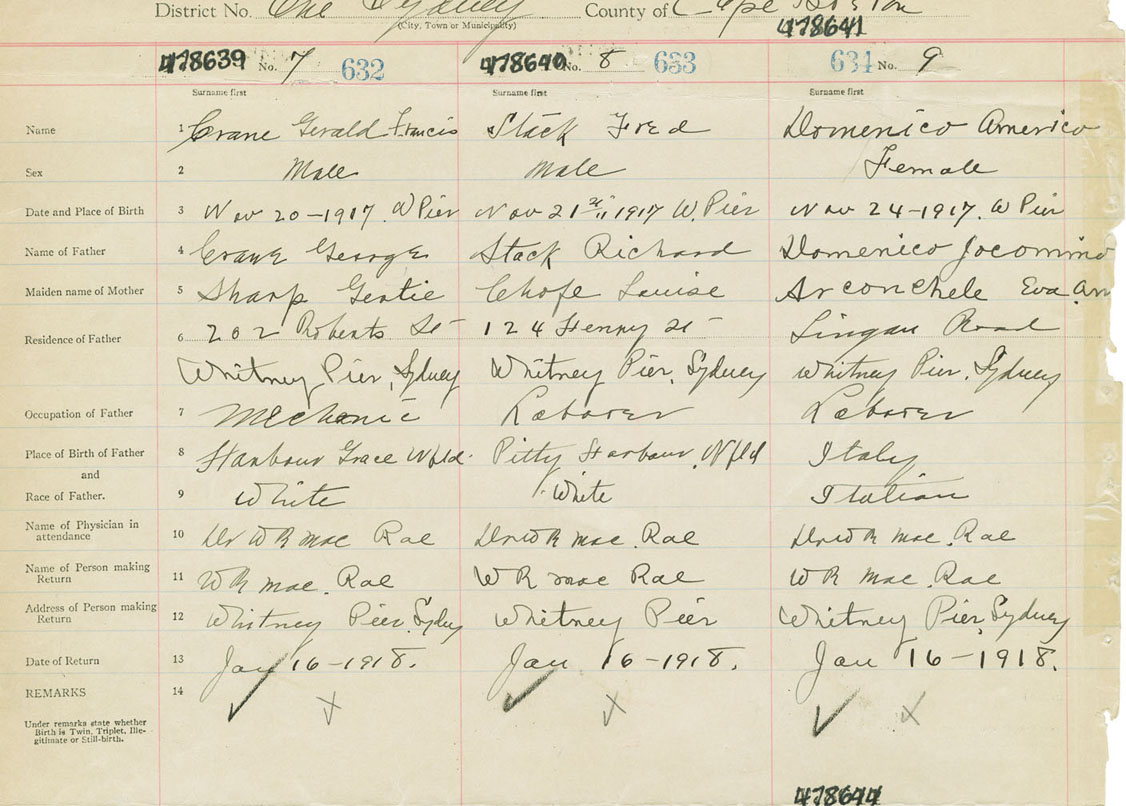 District No. One Sydney County of Cape Breton
(City, Town or Municipality)
478641
478639 No. 7 632 478640 No. 8 633 634 No. 9
Surname first Surname first Surname first
Name 1 Crane Gerald Francis Stack Fred Domenico Americo
Sex 2 Male Male Female
Date and Place of Birth 3 Nov 20-1917. W Pier Nov 21 1917 W. Pier Nov 24-1917. W Pier
Name of Father 4 Crane George Stack Richard Domenico Jocomino
Maiden name of Mother 5 Sharp Gertie Chafe Louise Arconchele Eva An
Residence of Father 6 202 Roberts St 124 Henry St Lingan Road
Whitney Pier, Sydney Whitney Pier, Sydney Whitney Pier, Sydney
Occupation of Father 7 Mechanic Laborer Laborer
Place of Birth of Father 8 Harbour Grace Nfld. Pitty Harbour, Nfld Italy
and
Race of Father. 9 White White Italian
Name of Physician in attendance 10 Dr W R mac Rae Dr W R mac. Rae Dr W R mac. Rae
Name of Person making Return 11 W R mac. Rae W R mac Rae W R mac. Rae
Address of Person making Return 12 Whitney Pier. Sydney Whitney Pier Whitney Pier, Sydney
Date of Return 13 Jan 16-1918. Jan 16-1918. Jan 16-1918.
REMARKS 14
Under remarks state whether
Birth is Twin, Triplet, Ille-
gitimate or Still-birth.
478644